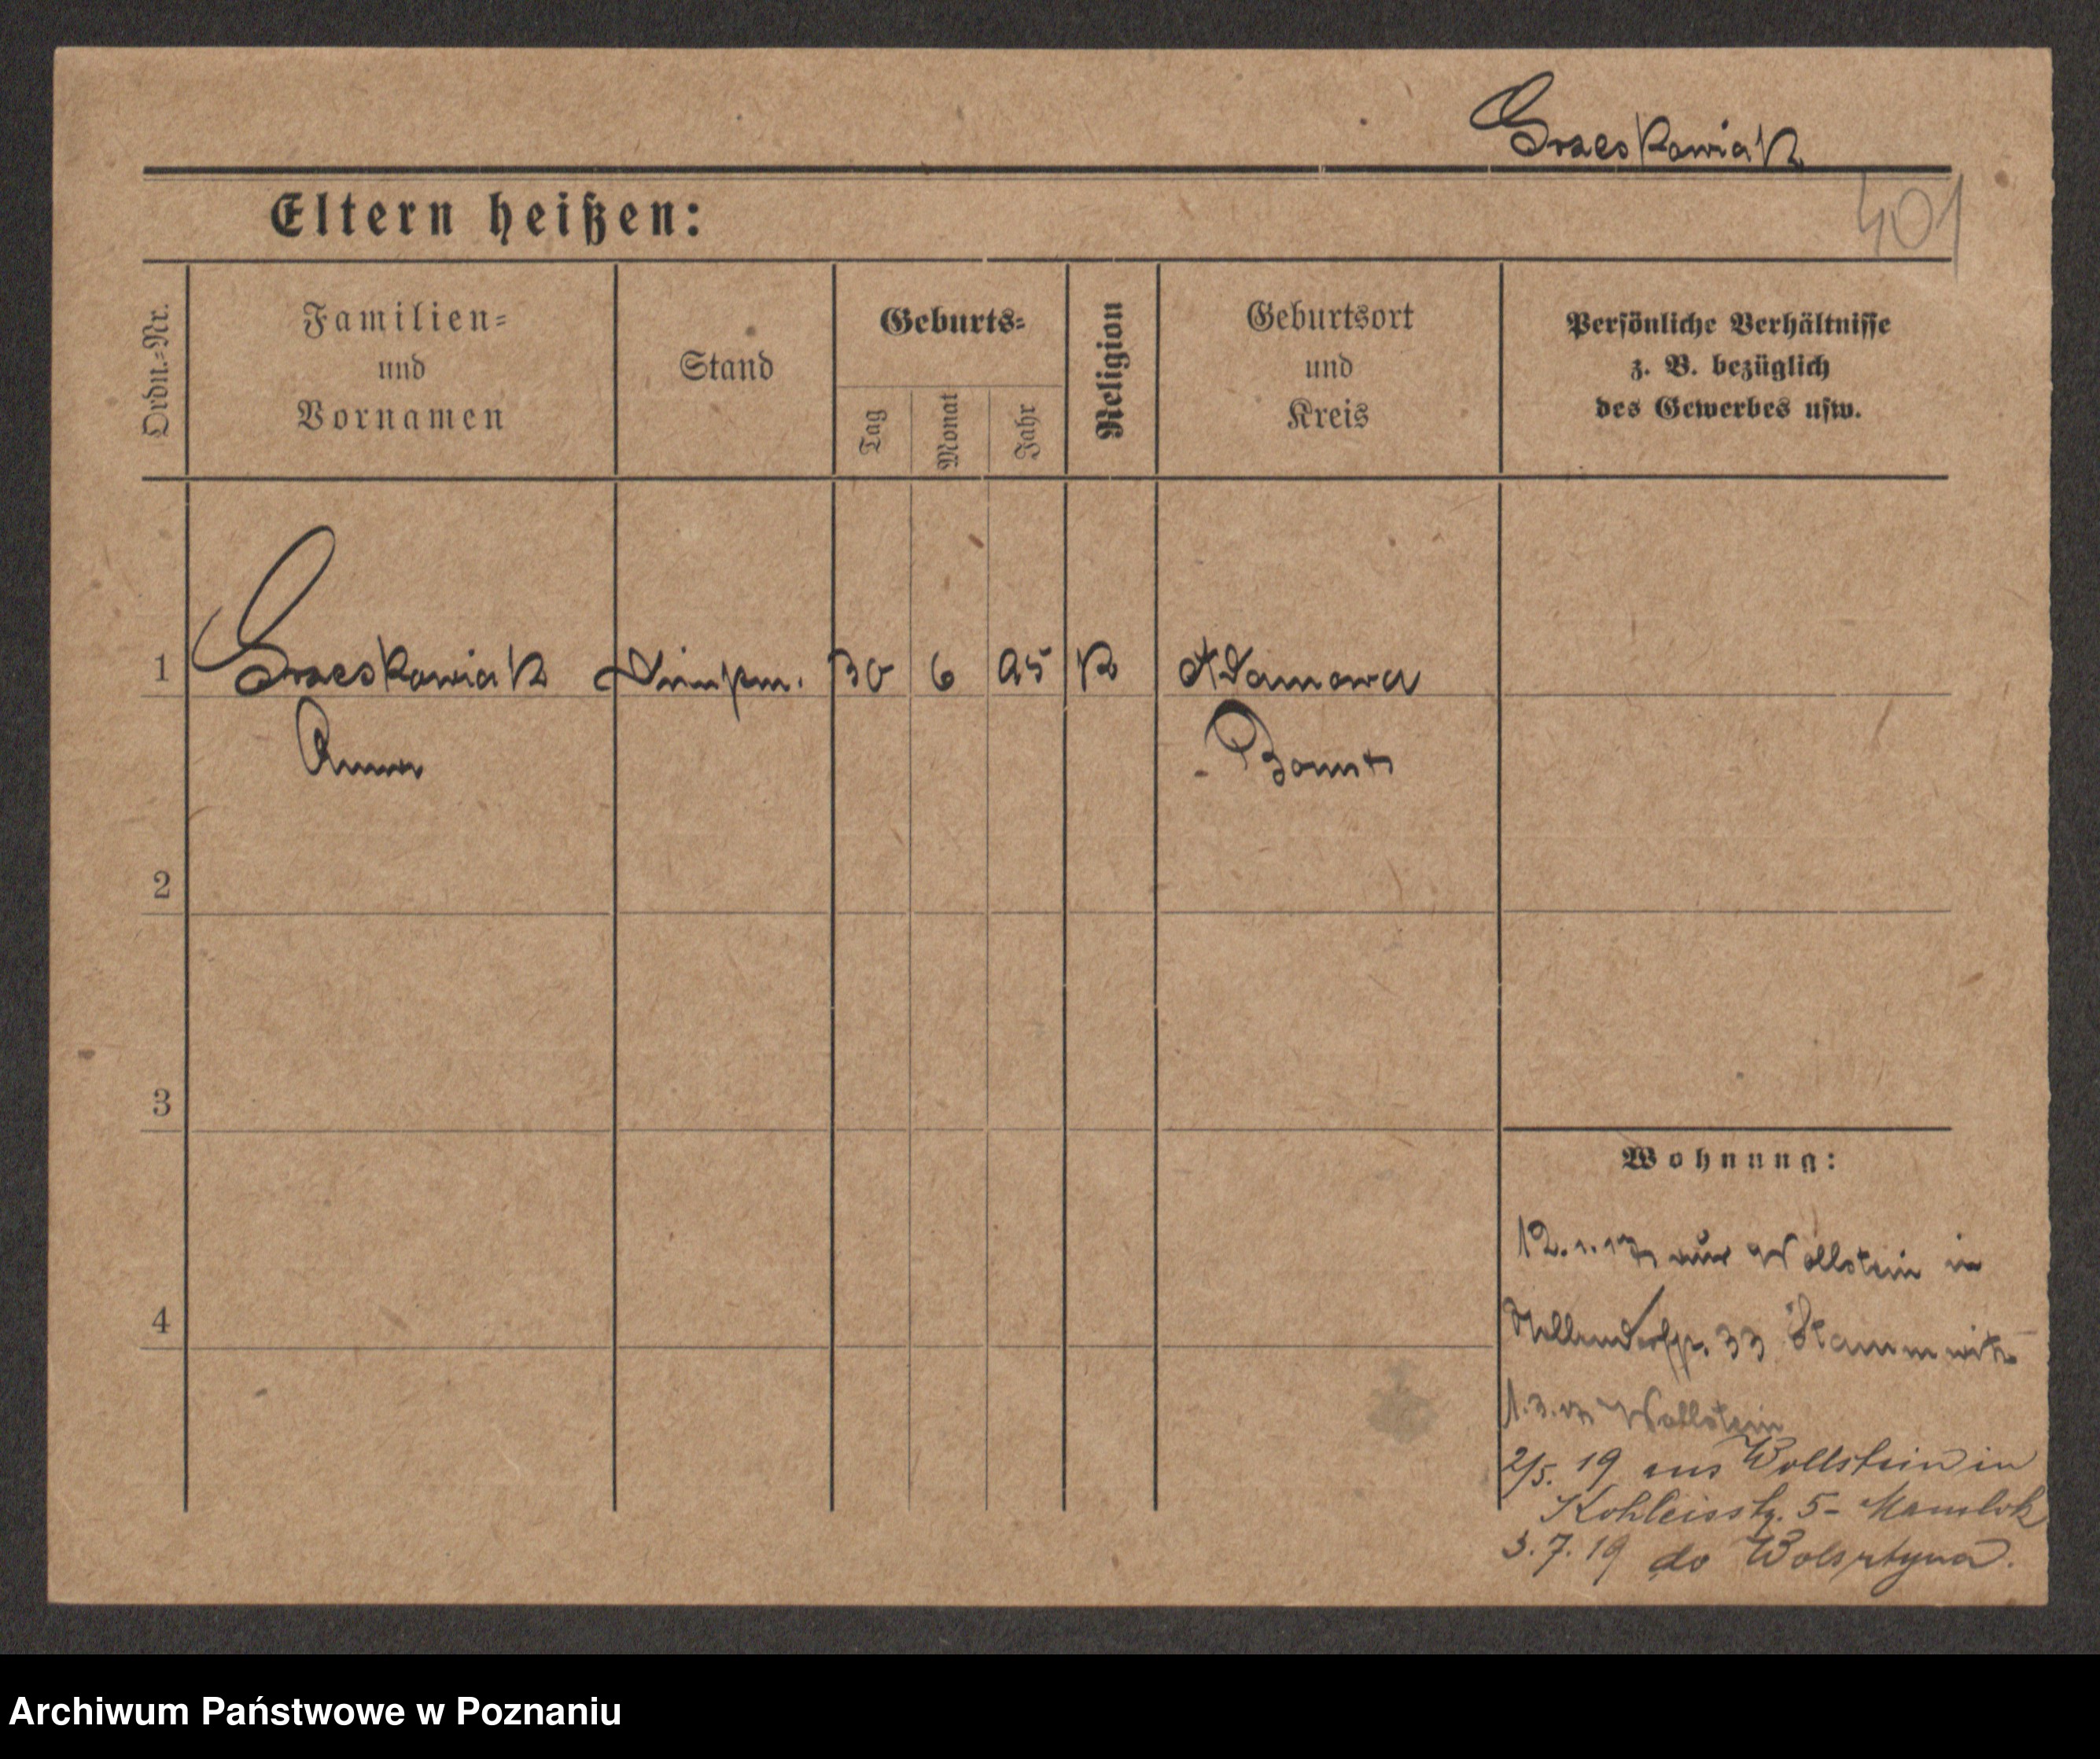 Grzeskowiak
401
Eltern heißen:
Ordn.-Nr.
Familien- und Vornamen
Stand
Geburts-
Tag
Monat
Jahr
Religion
Geburtsort und Kreis
Persönliche Verhältnisse z. B. bezüglich des Gewerbes usw.
1
Grzeskowiak
30
6
95
K
Adamowo
Anna
Bomst
2
3
4
Wohnung:
12.1.17 aus Wollstein in
33
1.3.17 Wollstein
2/5. 19 aus Wollstein in
5- Mamlok
3.7.19 do Wolsztyna.
Archiwum Państwowe w Poznaniu